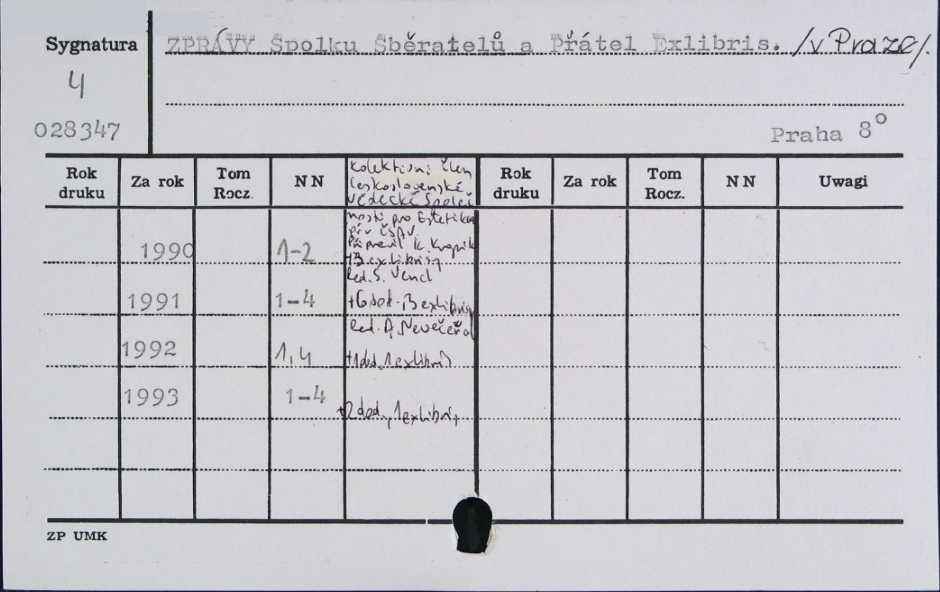 Sygnatura
ZPRÁVY Spolku Sběratelů a Přátel Exlibris. /v Praze/.
4
028347
Praha 8°
Rok druku Za rok Tom Rocz. NN Kolektivní člen Rok druku Za rok Tom Rocz. NN Uwagi
Československé
vědecké společ
nosti pro Estetiku
při ČSAV
1990 1-2
Připravil K.
+3 exlibrisy
Red. S. Vencl
1991 1-4 +6 dod., 3 exlibrisy
Red. A. Nevečeřa
1992 1,4 +1 dod., 1 exlibris
1993 1-4 +2 dod., 1 exlibris
ZP UMK